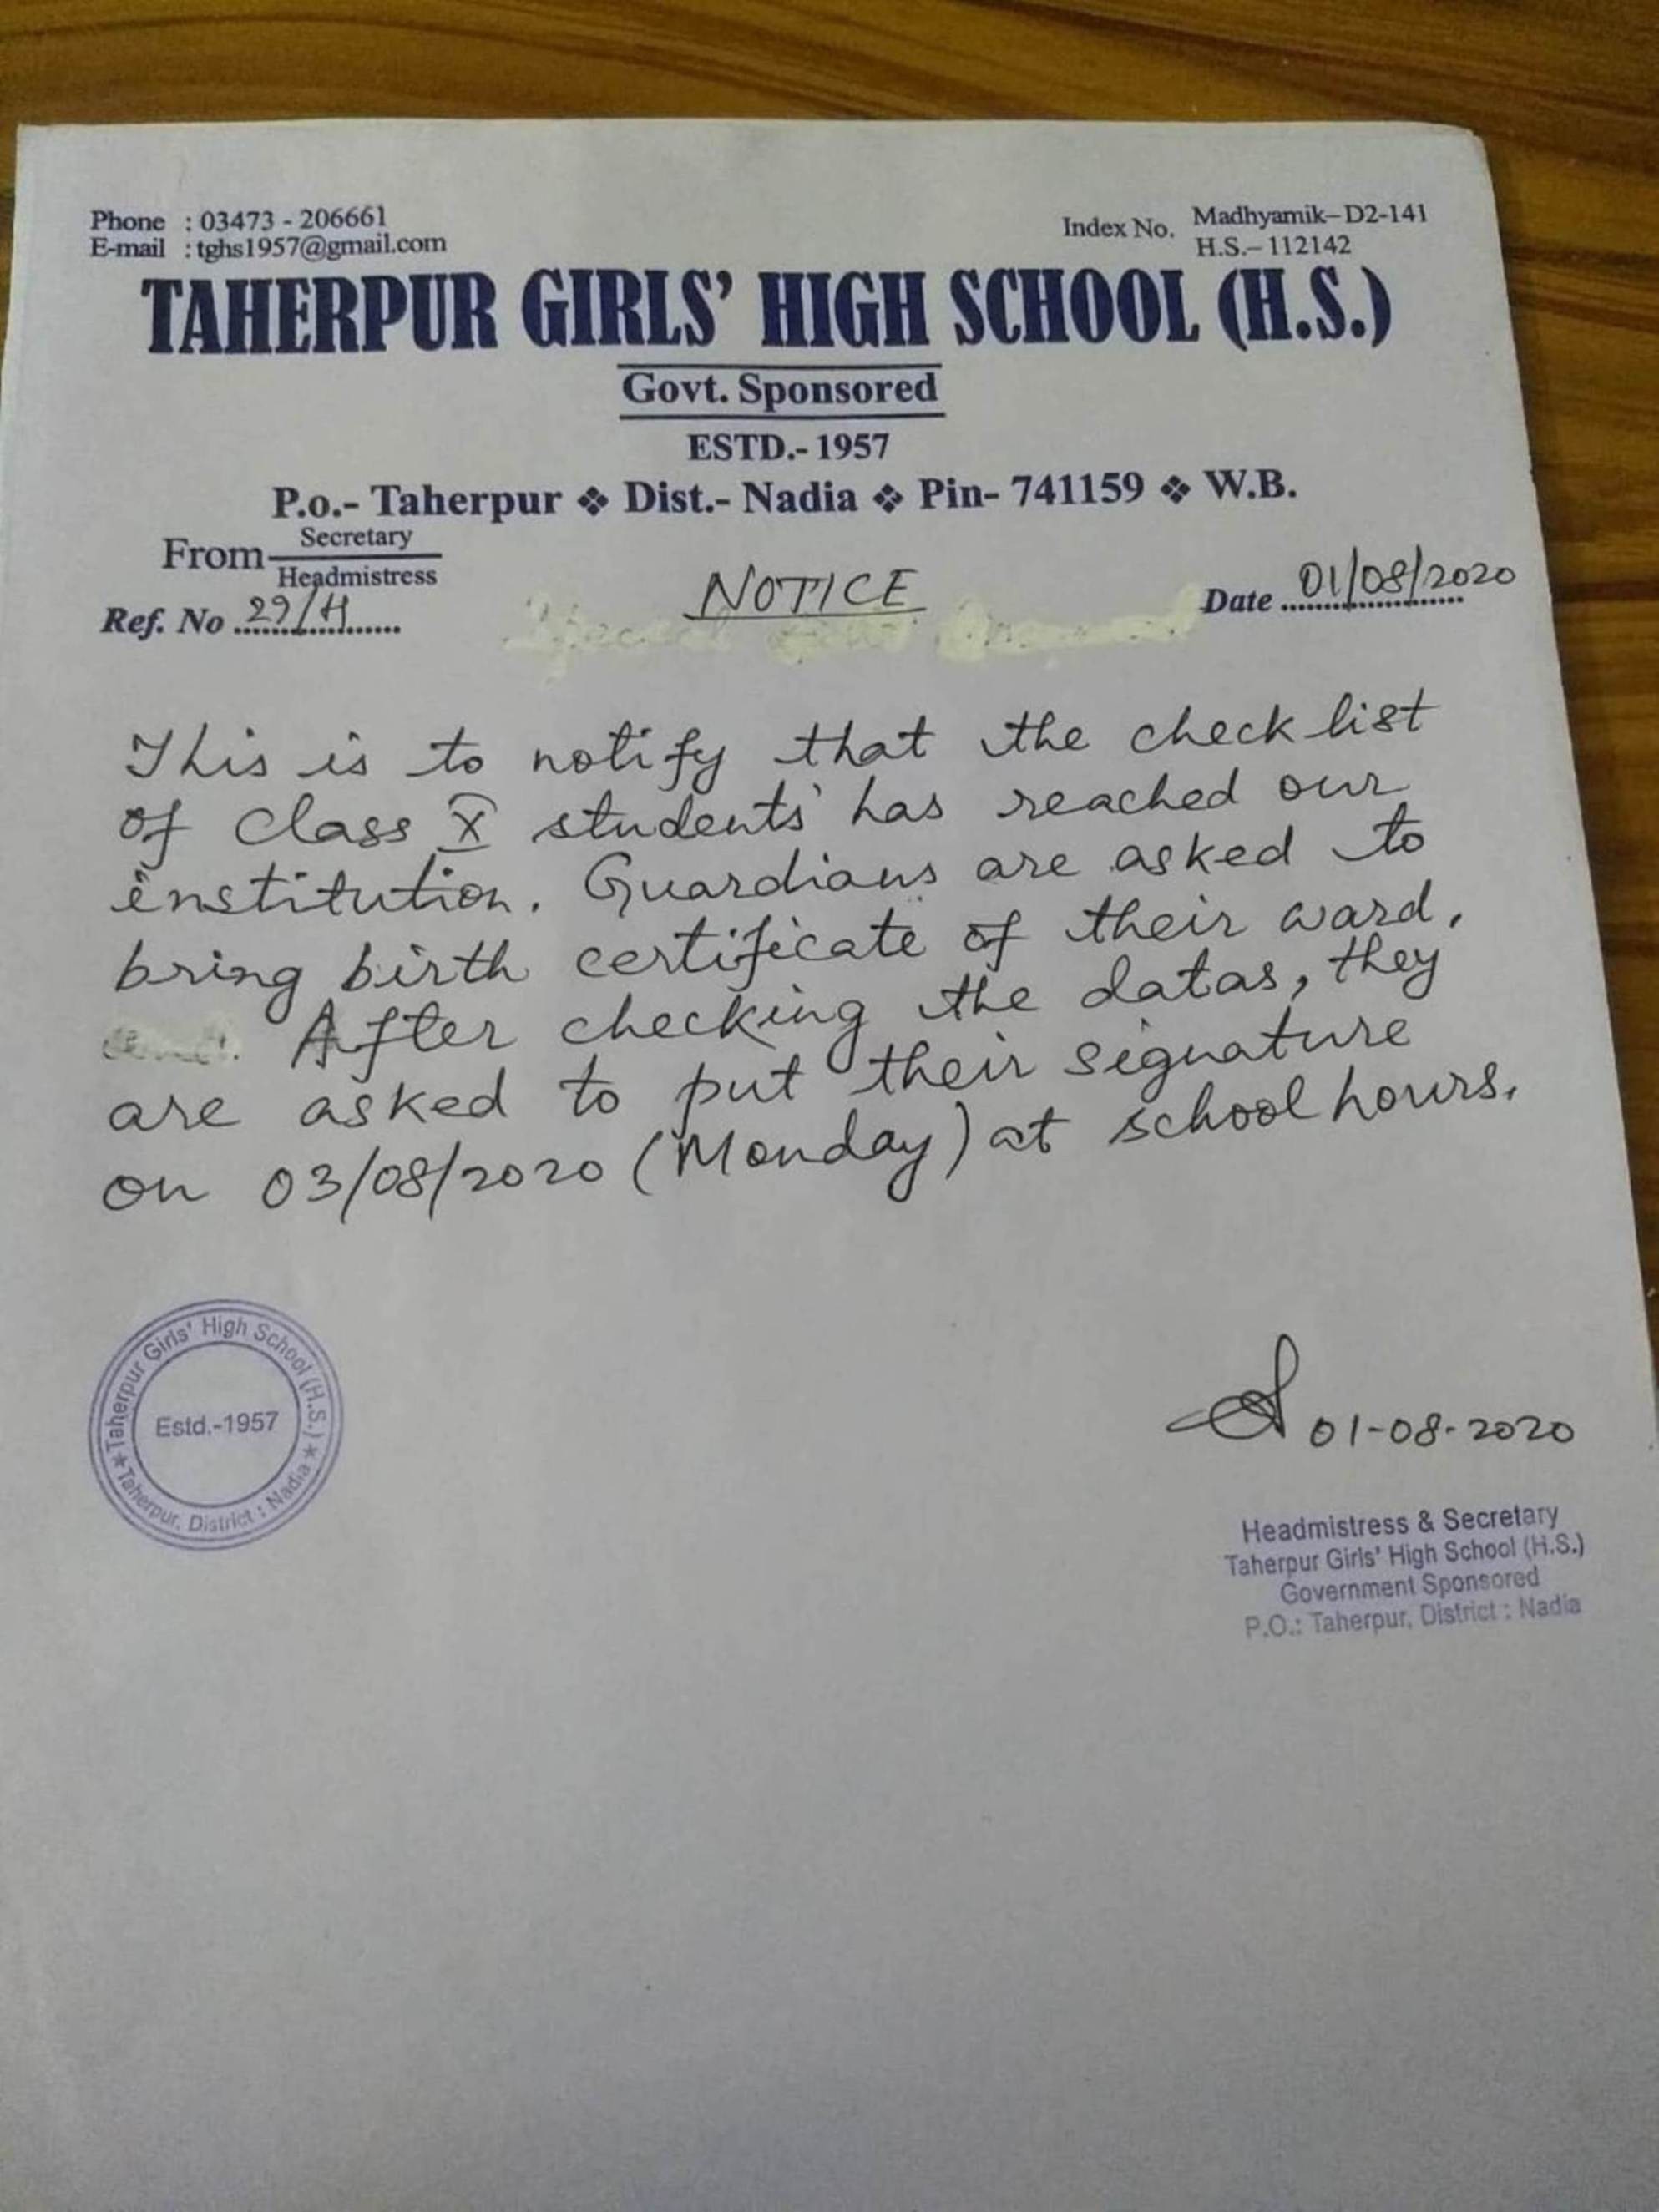 Phone : 03473 - 206661
E-mail : tghs1957@gmail.com
Index No. Madhyamik– D2-141
H.S.– 112142
TAHERPUR GIRLS' HIGH SCHOOL (H.S.)
Govt. Sponsored
ESTD.- 1957
P.o.- Taherpur ❖ Dist.- Nadia ❖ Pin- 741159 ❖ W.B.
From Secretary
Headmistress
Ref. No 29/H
NOTICE
Date 01/08/2020
This is to notify that the check list
of class X students' has reached our
institution. Guardians are asked to
bring birth certificate of their ward.
After checking the datas, they
are asked to put their signature
on 03/08/2020 (Monday) at school hours.
Taherpur Girls' High School (H.S.)
★ Taherpur, District : Nadia ★
Estd.-1957
01-08-2020
Headmistress & Secretary
Taherpur Girls' High School (H.S.)
Government Sponsored
P.O.: Taherpur, District : Nadia